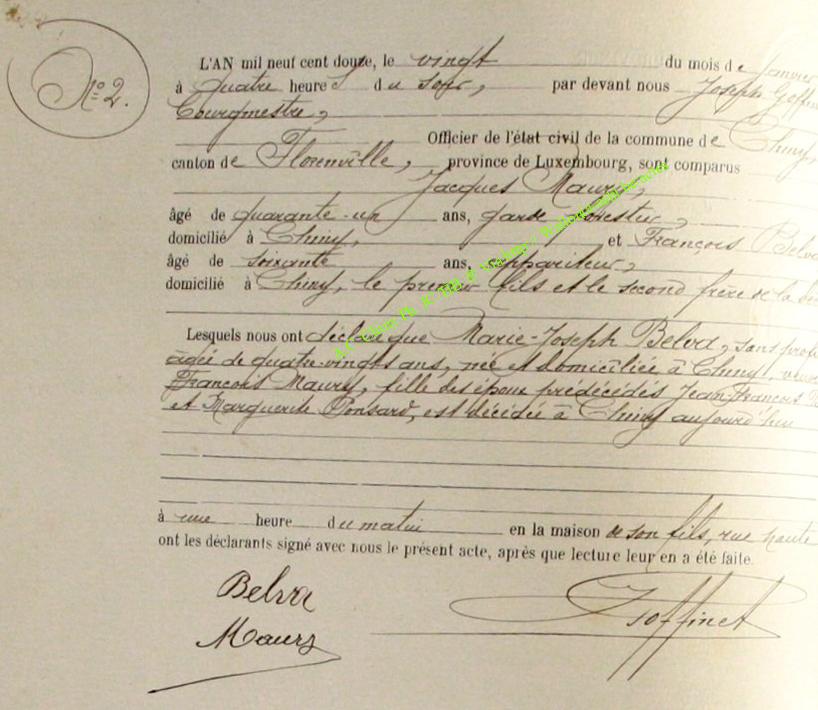 N° 2.
L'AN mil neuf cent douze, le vingt du mois de janvier
à quatre heures du soir, par devant nous Joseph Goffin
Bourgmestre,
Officier de l'état civil de la commune de Chiny,
canton de Florenville, province de Luxembourg, sont comparus
Jacques Maury,
âgé de quarante-un ans, garde forestier,
domicilié à Chiny, et François Belva
âgé de soixante ans, appariteur,
domicilié à Chiny, le premier fils et le second frère de la
Lesquels nous ont déclaré que Marie-Joseph Belva, sans
âgée de quatre-vingts ans, née et domiciliée à Chiny, veuve
François Maury, fille des époux prédécédés Jean-François
et Marguerite Ponsard, est décédée à Chiny aujourd'hui
à une heure du matin en la maison de son fils, rue haute
ont les déclarants signé avec nous le présent acte, après que lecture leur en a été faite.
Belva
Maury
J Goffinet